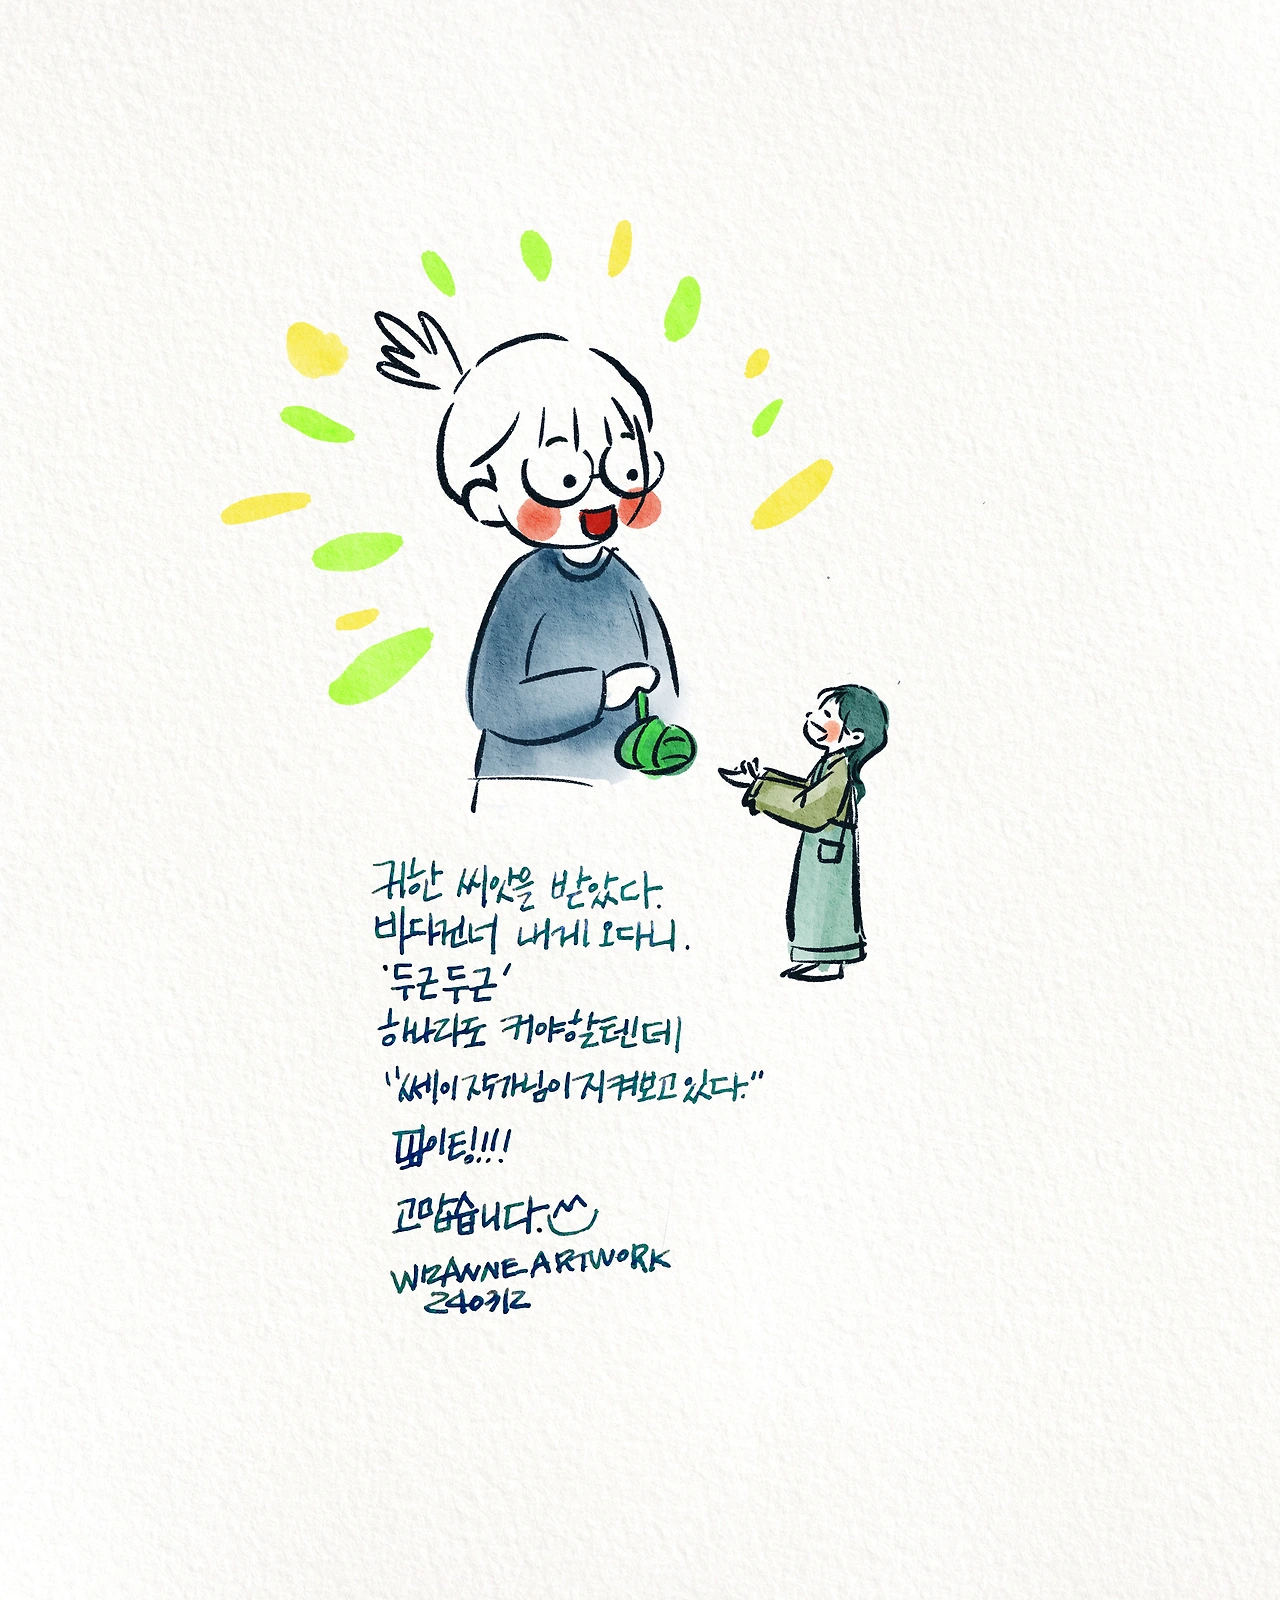 귀한 씨앗을 받았다.
바다건너 내게 오다니.
'두근두근'
하나라도 커야할텐데
"쎄이 작가님이 지켜보고 있다."
이팅!!!
고맙습니다.
WIZANNE ARTWORK
240312